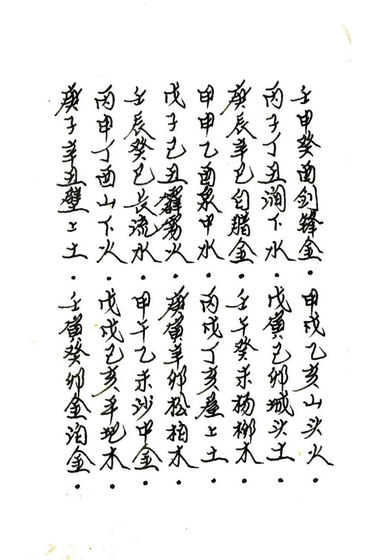 壬申癸酉剑锋金·甲戌乙亥山头火·
丙子丁丑涧下水·戊寅己卯城头土·
庚辰辛巳白腊金·壬午癸未杨柳木·
甲申乙酉泉中水·丙戌丁亥屋上土·
戊子己丑霹雳火·庚寅辛卯松柏木·
壬辰癸巳长流水·甲午乙未沙中金·
丙申丁酉山下火·戊戌己亥平地木·
庚子辛丑壁上土·壬寅癸卯金泊金·